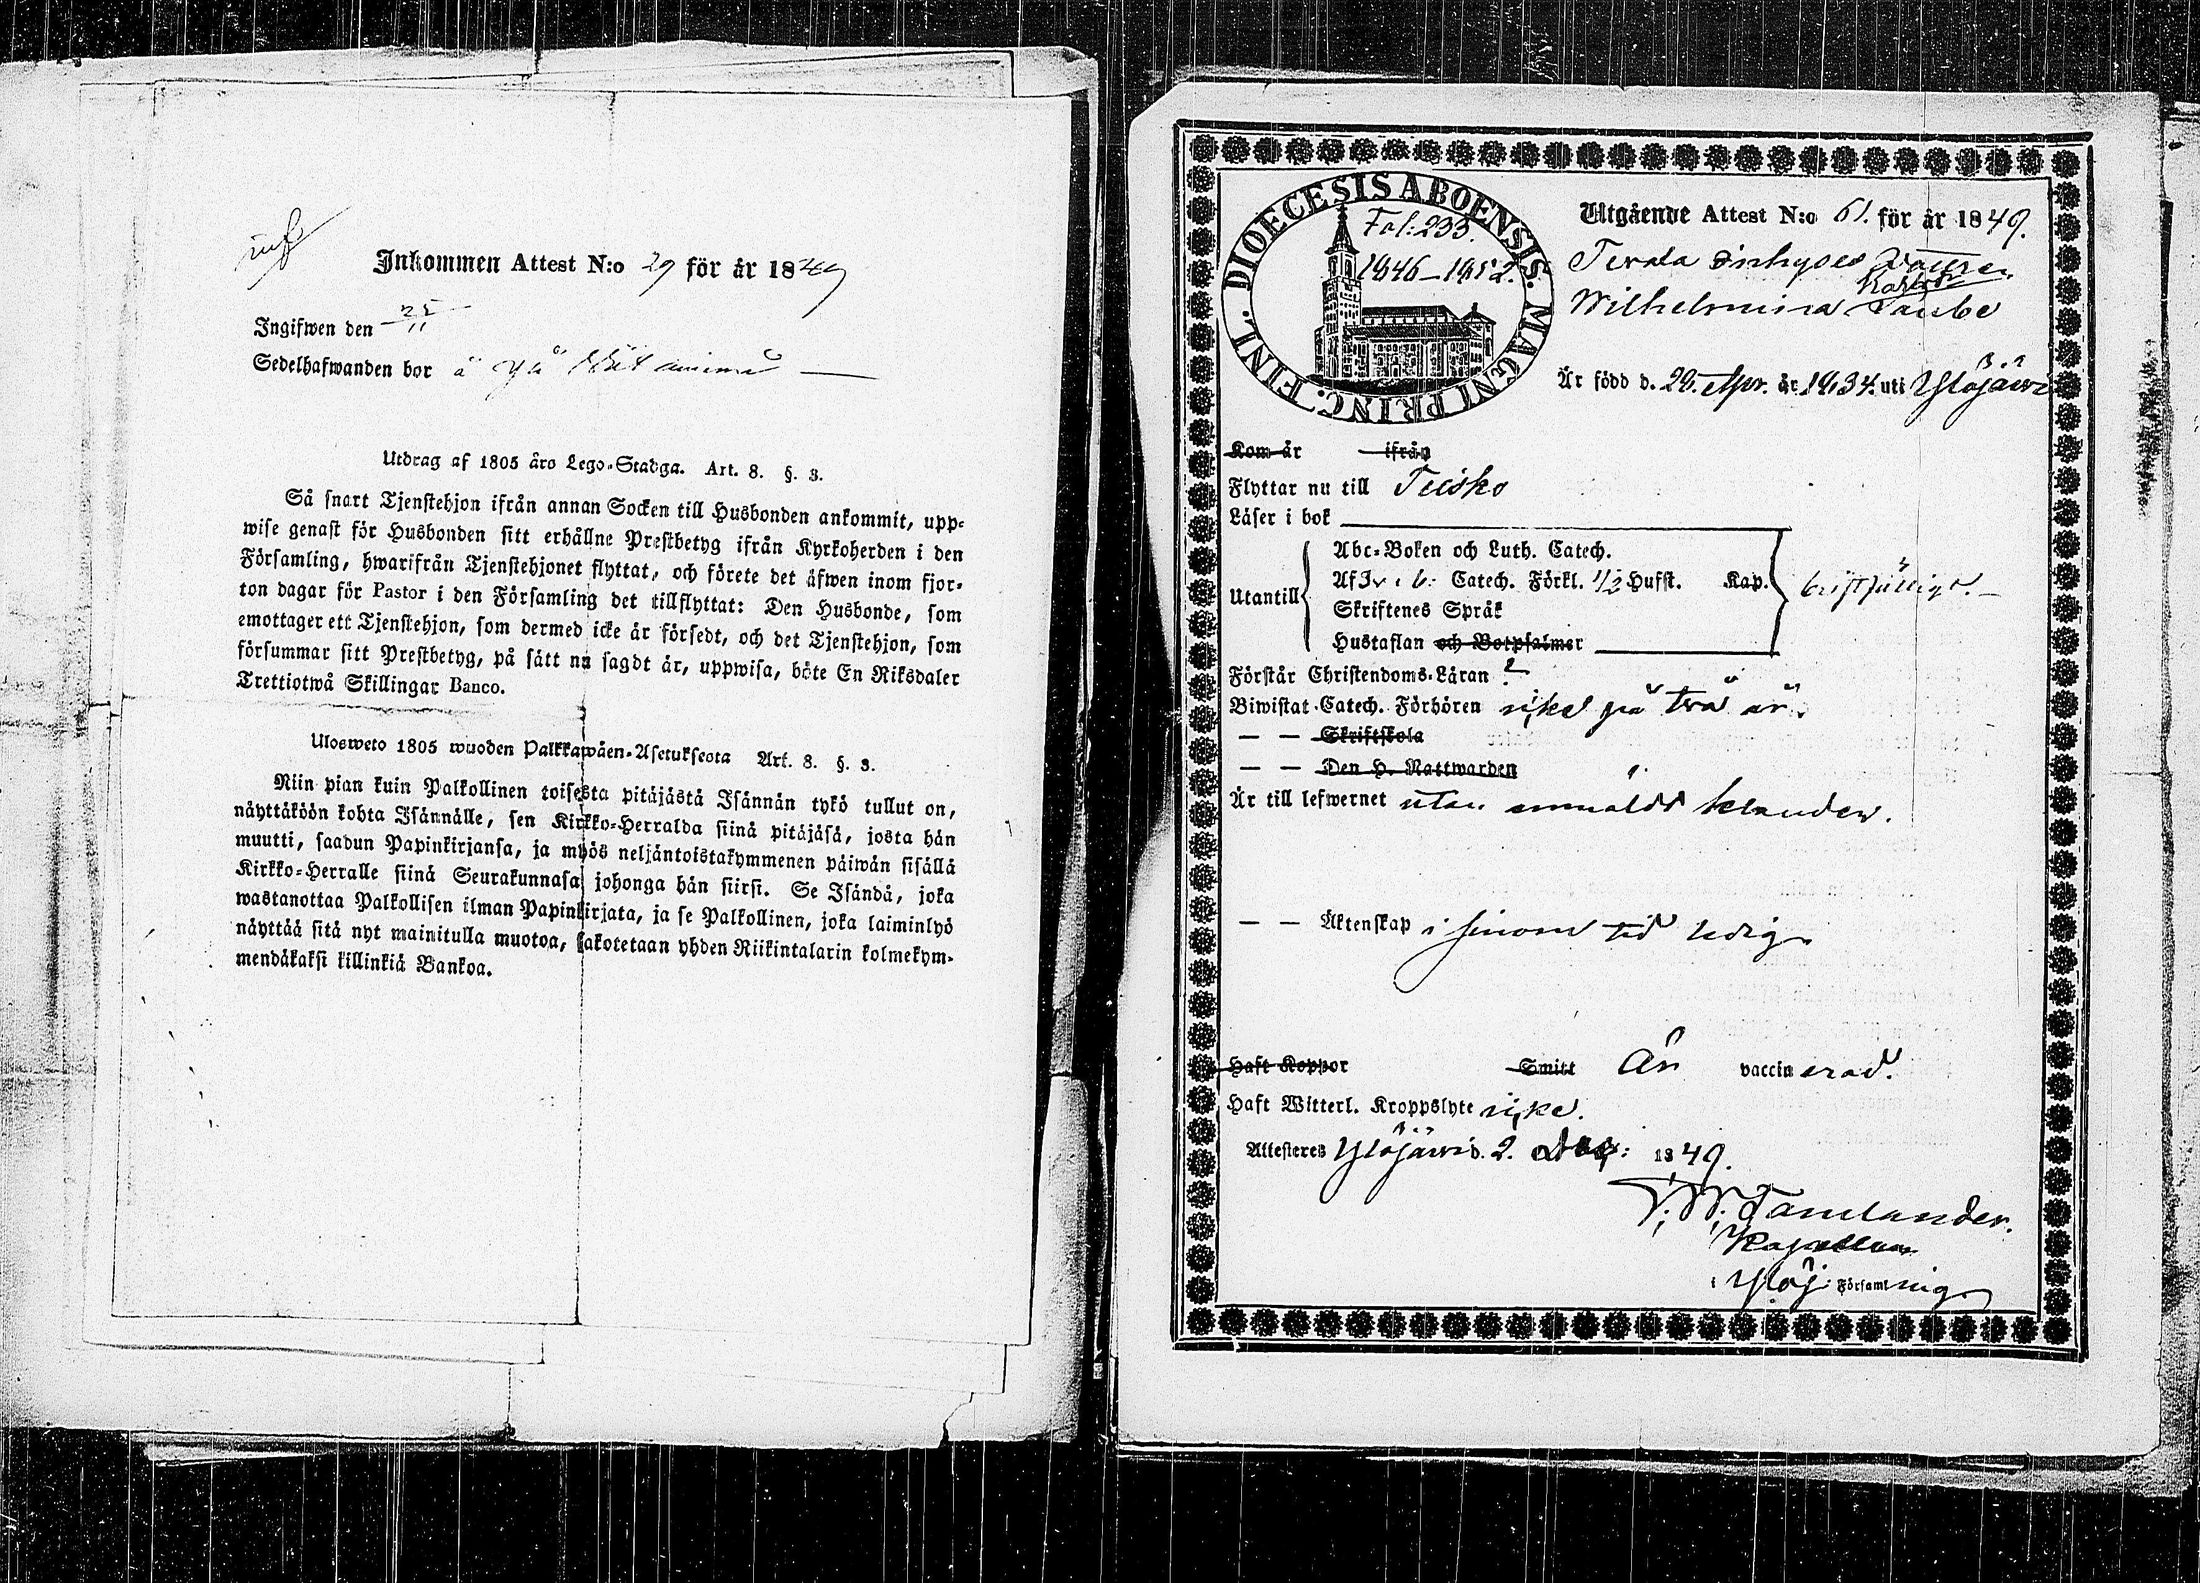 inf
Inkommen Attest N:o 29 för år 1849
Ingifwen den 25/11
Sedelhafwanden bor å
Utdrag af 1805 års Lego-Stadga. Art. 8. §. 3.
Så snart Tjenstehjon ifrån annan Socken till Husbonden ankommit, upp-
wise genast för Husbonden sitt erhållne Prestbetyg ifrån Kyrkoherden i den
Församling, hwarifrån Tjenstehjonet flyttat, och förete det äfwen inom fjor-
ton dagar för Pastor i den Församling det tillflyttat: Den Husbonde, som
emottager ett Tjenstehjon, som dermed icke är försedt, och det Tjenstehjon, som
försummar sitt Prestbetyg, på sätt nu sagdt är, uppwisa, böte En Riksdaler
Trettiotwå Skillingar Banco.
Ulosweto 1805 wuoden Palkkawäen-Asetuksesta Art. 8. §. 3.
Niin pian kuin Palkollinen toisesta pitäjästä Isännän tykö tullut on,
näyttäköön kohta Isännälle, sen Kirkko-Herralda siinä pitäjäsä, josta hän
muutti, saadun Papinkirjansa, ja myös neljäntoistakymmenen päiwän sisällä
Kirkko-Herralle siinä Seurakunnasa johonga hän siirsi. Se Isändä, joka
wastanottaa Palkollisen ilman Papinkirjata, ja se Palkollinen, joka laiminlyö
näyttää sitä nyt mainitulla muotoa, sakotetaan yhden Riikintalarin kolmekym-
mendäkaksi killinkiä Bankoa.
DIOECESIS ABOENSIS. MAGNI PRINC. FINL.
Fol: 233.
1846–1852.
Utgående Attest N:o 61. för år 1849.
Wilhelmina Taube
Är född d. 20. Apr. år 1834. uti Ylöjäwi
Kom år ifrån
Flyttar nu till Teisko
Läser i bok
Abc-Boken och Luth. Catech.
Utantill Af Catech. Förkl. 1/2 Hufst. Kap. bristfälligt.
Skriftenes Språk
Hustaflan och Botpsalmer
Förstår Christendoms-Läran ?
Biwistat Catech. Förhören icke på två år.
— — Skriftskola
— — Den H. Nattwarden
Är till lefwernet utan anmäldt klander.
— — Äktenskap i sinom tid ledig
Haft Koppor Smitt Är vaccinerad.
Haft Witterl. Kroppslyte icke.
Attesteres Ylöjäwi d. 2. 1849.
Tamlander.
Kapellan
i Ylöj: Församlning